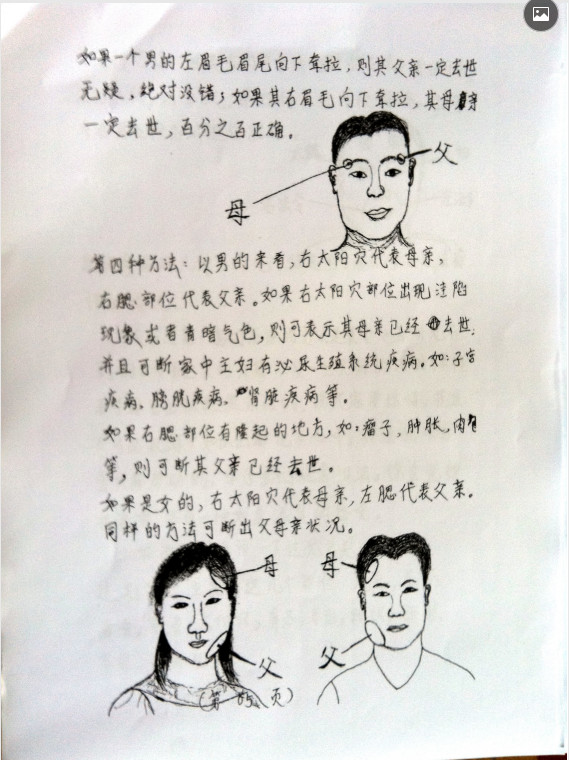 如果一个男的左眉毛眉尾向下耷拉，则其父亲一定去世
无疑，绝对没错；如果其右眉毛向下耷拉，其母亲
一定去世，百分之百正确。
父
母
第四种方法：以男的来看，右太阳穴代表母亲，
右腮部位代表父亲。如果右太阳穴部位出现洼陷
现象或者青暗气色，则可表示其母亲已经去世，
并且可断家中主妇有泌尿生殖系统疾病。如：子宫
疾病，膀胱疾病，肾脏疾病等。
如果右腮部位有隆起的地方，如：瘤子，肿胀，肉
等，则可断其父亲已经去世。
如果是女的，右太阳穴代表母亲，左腮代表父亲。
同样的方法可断出父母亲状况。
母 母
父 父
（第65页）